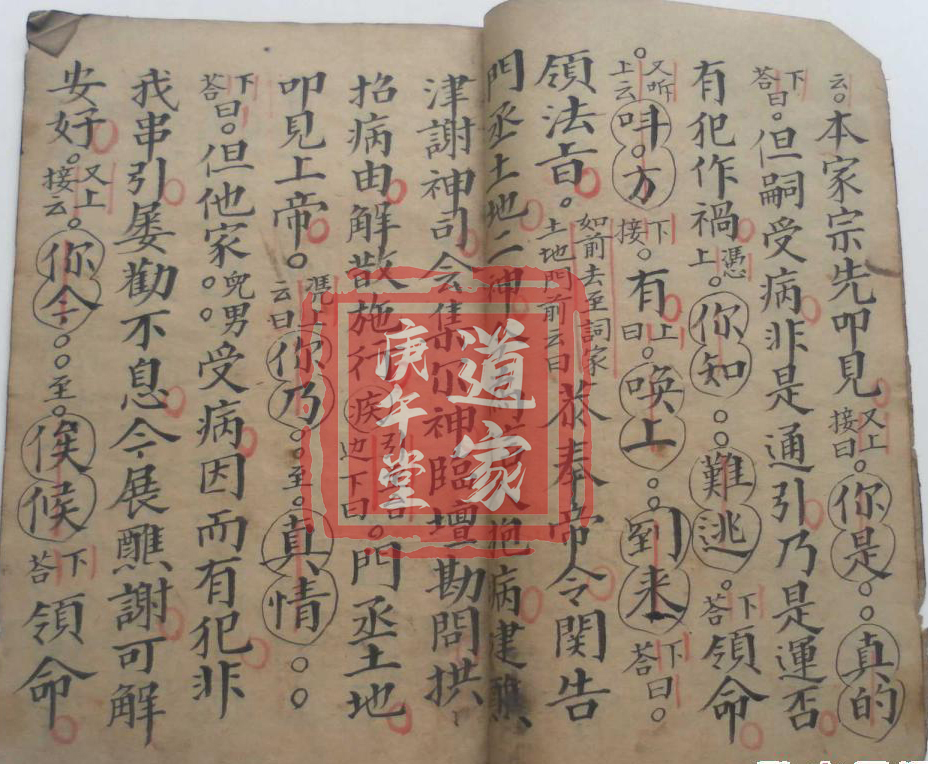 云。本家宗先叩見又上接曰。你是。。真的
下荅曰。但嗣受病非是通引乃是運否
有犯作禍上憑。你知。。難逃。下荅領命
又听上云。呌方下接。有上曰。喚上。。到来下荅曰。
領法旨。如前去至詞家土地門前云曰恭奉帝令関告
門丞土地二神抱病建醮
津謝神司会集尔神臨壇勘問拱
招病由解散施行边下曰。門丞土地
叩見上帝。憑上云曰你乃。。至。真情。。
下荅曰。但他家。。兒男受病因而有犯非
我串引屡勸不息今展醮謝可解
安好。又上接云。你今。。至。俟候下荅領命
道家
庚午堂